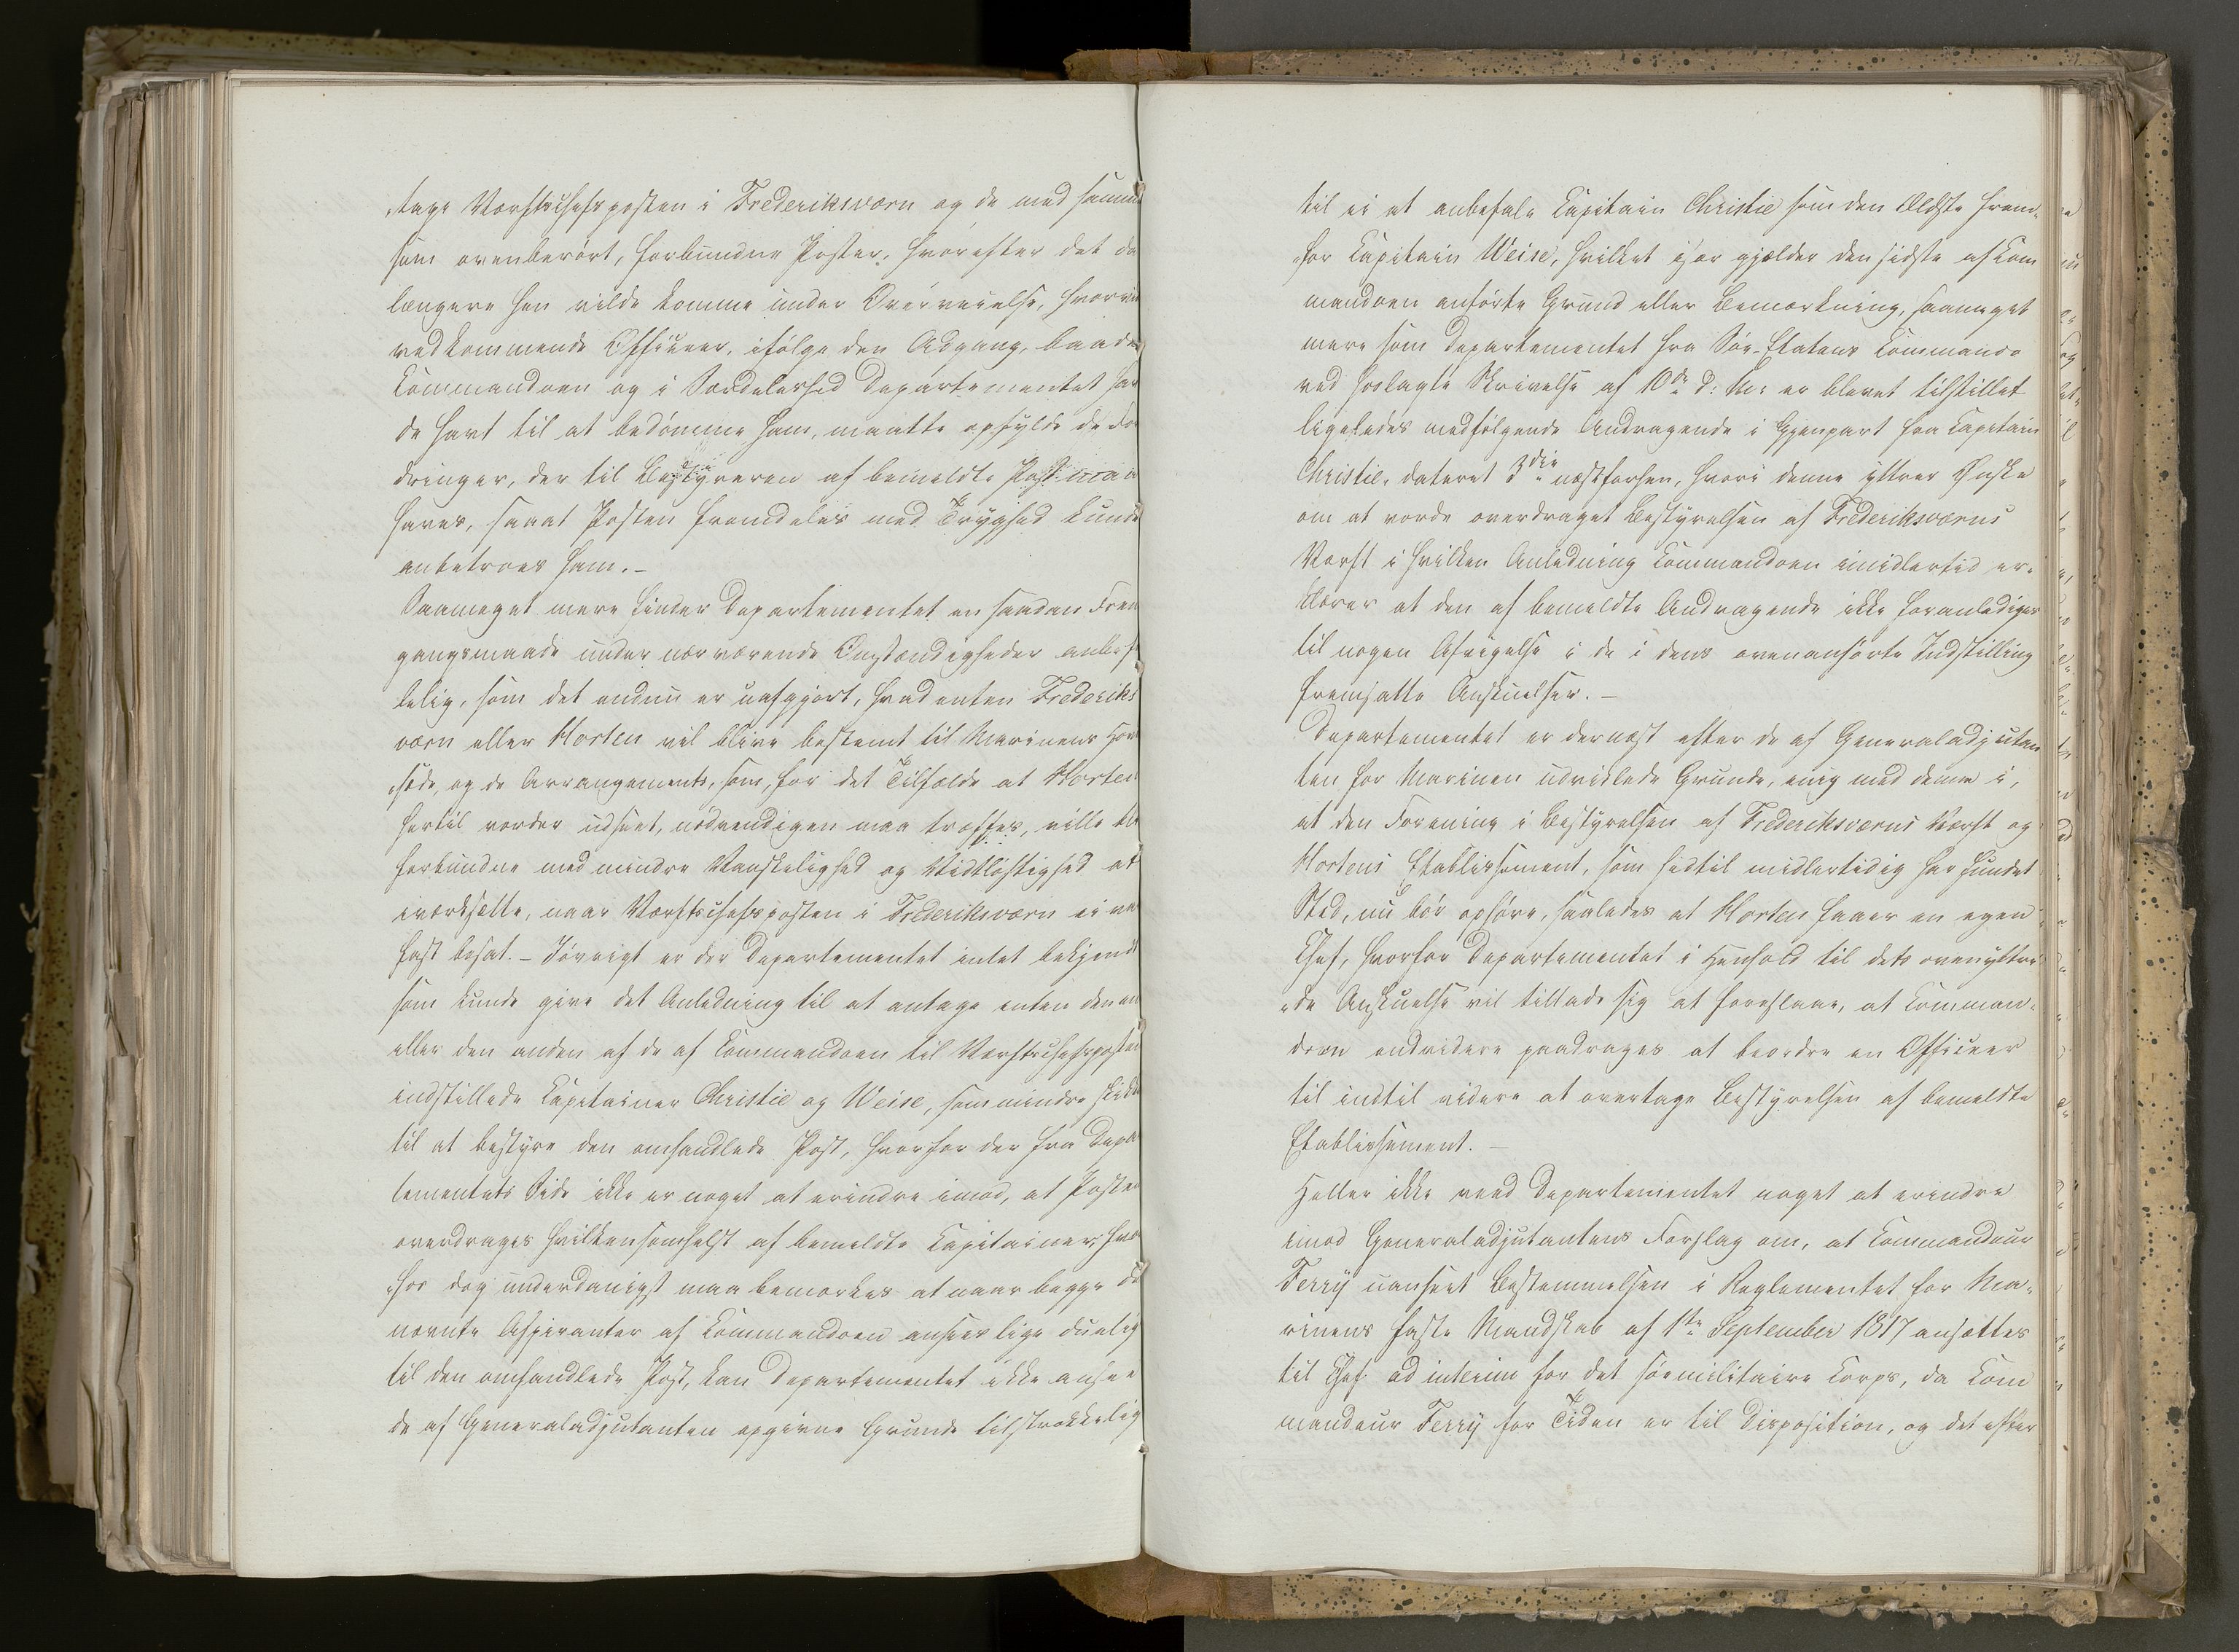 „tage Værftschefsposten i Frederiksværn og de med samme
som ovenberørt, forbundne Poster, hvorefter det da
længere hen vilde komme under Overveielse, hvorvi
vedkommende Officeer, ifølge den Adgang, baade
Commandoen og i Særdeleshed Departementet har
de havt til at bedømme ham, maatte opfylde de For
dringer, der til Bestyreren af bemeldte Post maa
haves, saaat Posten fremdeles med Tryghed kunde
anbetroes ham. –
Saameget mere finder Departementet en saadan Frem
gangsmaade under nærværende Omstændigheder anbefa
lelig, som det endnu er uafgjort, hvad enten Frederiks
værn eller Horten vil blive bestemt til Marinens Hoved
„sæde, og de Arrangements, som, for det Tilfælde at Horten
hertil vorder udseet, nødvendigen maa træffes, ville bli
forbundne med mindre Vanskelighed og Vidtløftighed at
iværksætte, naar Værftschefsposten i Frederiksværn ei er
fast besat. – Iøvrigt er der Departementet intet bekjendt
som kunde give det Anledning til at antage enten den en
eller den anden af de af Commandoen til Værftschefsposten
indstillede Capitainer Christie og Weise, som mindre skikke
til at bestyre den omhandlede Post, hvorfor der fra Depar
tementets Side ikke er noget at erindre imod, at Posten
overdrages hvilkensomhelst af bemeldte Capitainer, hvor
„hos dog underdanigst maa bemærkes at naar begge de
nævnte Aspiranter af Commandoen ansees lige duelig
til den omhandlede Post, kan Departementet ikke ansee
de af Generaladjutanten opgivne Grunde tilstrækkelig
til ei at anbefale Capitain Christie som den Ældste frem„
„for Capitain Weise, hvilket især gjælder den sidste af Com
mandoen anførte Grund eller Bemærkning, saameget
mere som Departementet fra Søe-Etatens Commando
ved hoslagte Skrivelse af 10de d: M: er blevet tilstillet
ligeledes medfølgende Andragende i Gjenpart fra Capitain
Christie, dateret 3die næstforhen, hvori denne yttrer Ønske
om at vorde overdraget Bestyrelsen af Frederiksværns
Værft i hvilken Anledning Commandoen imidlertid er„
klærer at den af bemeldte Andragende ikke foranlediges
til nogen Afvigelse i de i dens ovenanførte Indstilling
fremsatte Anskuelser. –
Departementet er dernæst efter de af Generaladjutan
ten for Marinen udviklede Grunde, enig med denne i,
at den Forening i Bestyrelsen af Frederiksværns Værft og
Hortens Etablissement, som hidtil midlertidig har fundet
Sted, nu bør ophøre, saaledes at Horten faaer en egen
Chef, hvorfor Departementet i Henhold til dets ovenyttre
„de Anskuelse vil tillade sig at foreslaae, at Comman„
doen endvidere paadrages at beordre en Officeer
til indtil videre at overtage Bestyrelsen af bemeldte
Etablissement. –
Heller ikke veed Departementet noget at erindre
imod Generaladjutantens Forslag om, at Commandeur
Ferry uanseet Bestemmelsen i Reglementet for Ma„
rinens faste Mandskab af 1ste September 1817 ansættes
til Chef ad interim for det søemilitaire Corps, da Com
mandeur Ferry for Tiden er til Disposition, og det efter